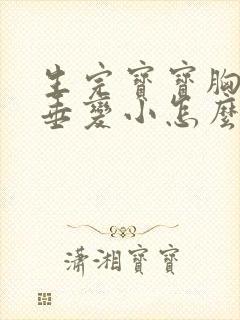 生完寶寶胸
垂變小怎麼
瀟湘寶寶